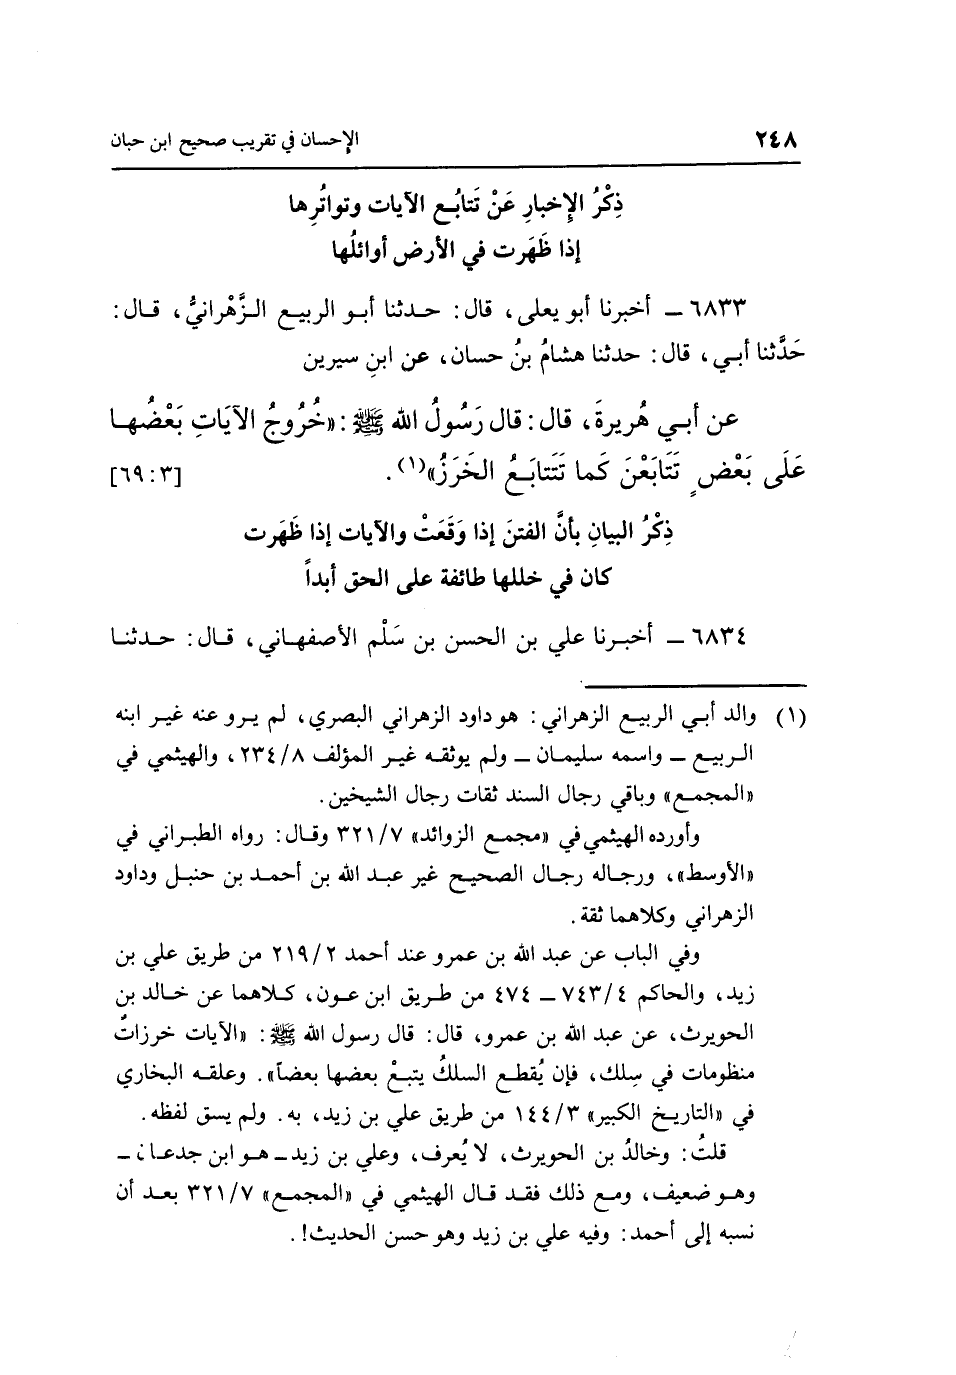 ٢٤٨ الإحسان في تقريب صحيح ابن حبان
ذِكْرُ الإِخبارِ عَنْ تَتابُع الآيات وتواتُرِها
إذا ظَهَرت في الأرض أوائلُها
٦٨٣٣ ــ أخبرنا أبو يعلى، قال: حدثنا أبو الربيع الزَّهْرانيُّ، قال:
حَدَّثنا أبي، قال: حدثنا هشامُ بنُ حسان، عن ابنِ سيرين
عن أبي هُريرةَ، قال: قال رَسُولُ الله ﷺ: «خُرُوجُ الآيَاتِ بَعْضُها
عَلَى بَعْضٍ تَتَابَعْنَ كَما تَتَتابَعُ الخَرَزُ»(١). [٦٩:٣]
ذِكْرُ البيانِ بأنَّ الفتنَ إذا وَقَعَتْ والآيات إذا ظَهَرت
كان في خللها طائفة على الحق أبداً
٦٨٣٤ ــ أخبرنا علي بن الحسن بن سَلْم الأصفهاني، قال: حدثنا
(١) والد أبي الربيع الزهراني: هو داود الزهراني البصري، لم يرو عنه غير ابنه
الربيع ــ واسمه سليمان ــ ولم يوثقه غير المؤلف ٢٣٤/٨، والهيثمي في
«المجمع» وباقي رجال السند ثقات رجال الشيخين.
وأورده الهيثمي في «مجمع الزوائد» ٣٢١/٧ وقال: رواه الطبراني في
«الأوسط»، ورجاله رجال الصحيح غير عبد الله بن أحمد بن حنبل وداود
الزهراني وكلاهما ثقة.
وفي الباب عن عبد الله بن عمرو عند أحمد ٢١٩/٢ من طريق علي بن
زيد، والحاكم ٧٤٣/٤ ــ ٤٧٤ من طريق ابن عون، كلاهما عن خالد بن
الحويرث، عن عبد الله بن عمرو، قال: قال رسول الله ﷺ: «الآيات خرزاتٌ
منظومات في سِلك، فإن يُقطع السلكُ يتبعْ بعضها بعضاً». وعلقه البخاري
في «التاريخ الكبير» ١٤٤/٣ من طريق علي بن زيد، به. ولم يسق لفظه.
قلتُ: وخالدُ بن الحويرث، لا يُعرف، وعلي بن زيد ــ هو ابن جدعان ــ
وهو ضعيف، ومع ذلك فقد قال الهيثمي في «المجمع» ٣٢١/٧ بعد أن
نسبه إلى أحمد: وفيه علي بن زيد وهو حسن الحديث!.